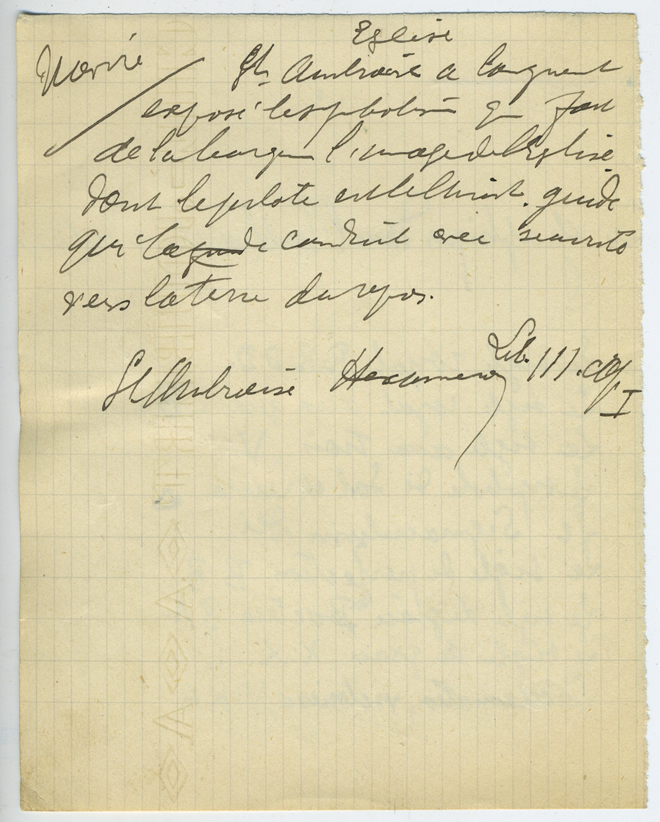 Eglise
Navire
St Ambroise a longuement
exposé le symbolisme qui fait
de la barque l'image de l'Eglise
dont le pilote est le Christ. guide
qui la guide conduit avec sécurité
vers la terre du repos.
St Ambroise Hexameron Lib. III. cap. I